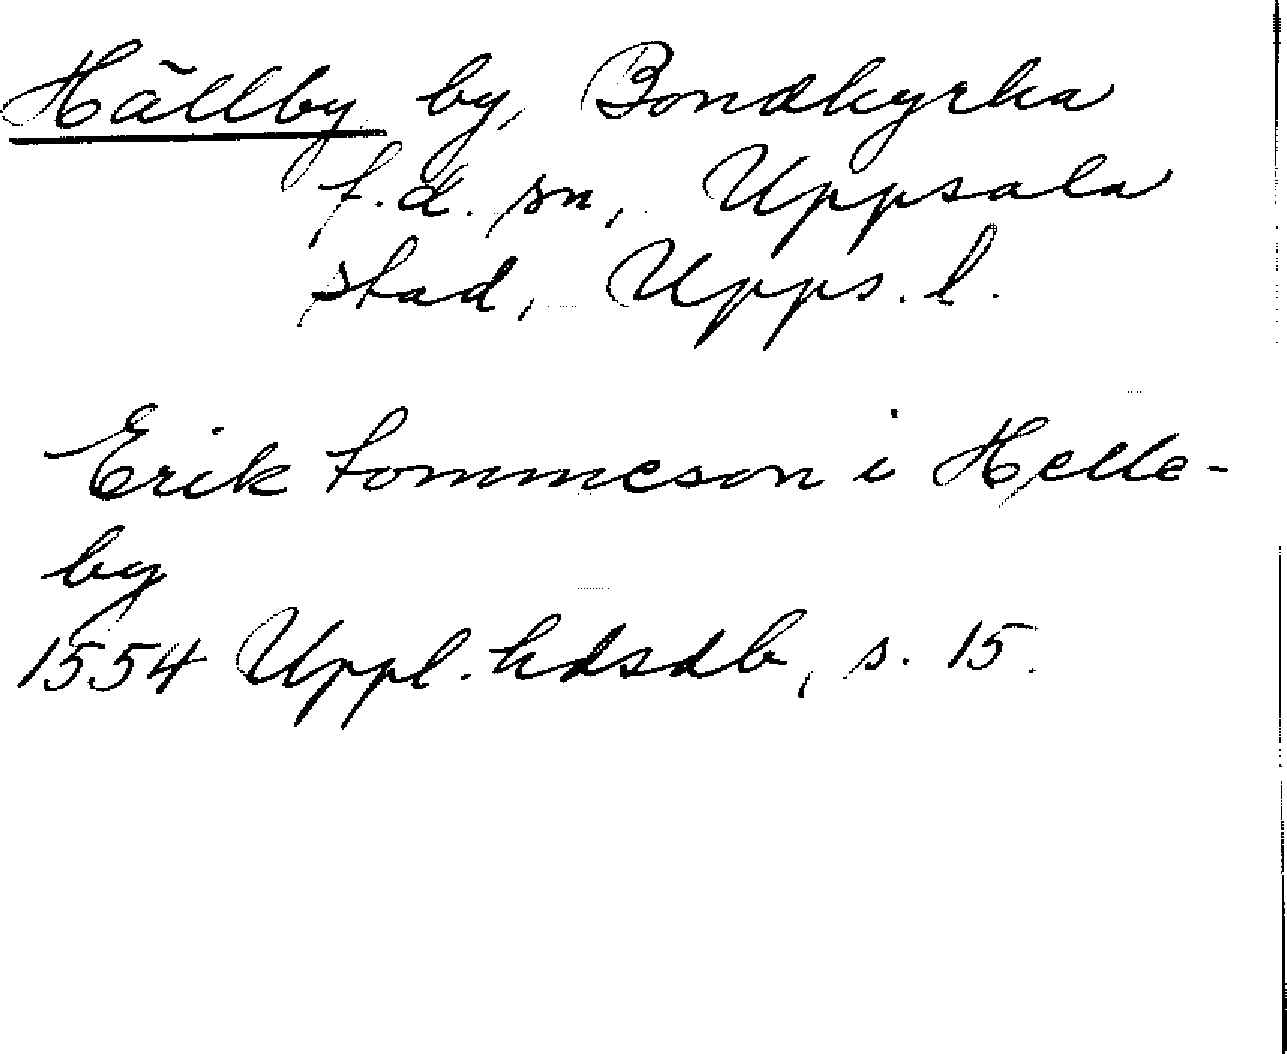 Hällby by, Bondkyrka
f.d. sn, Uppsala
stad, Upps. l.
Erik tommeson i Helle-
by
1554 Uppl. hdsdb, s. 15.